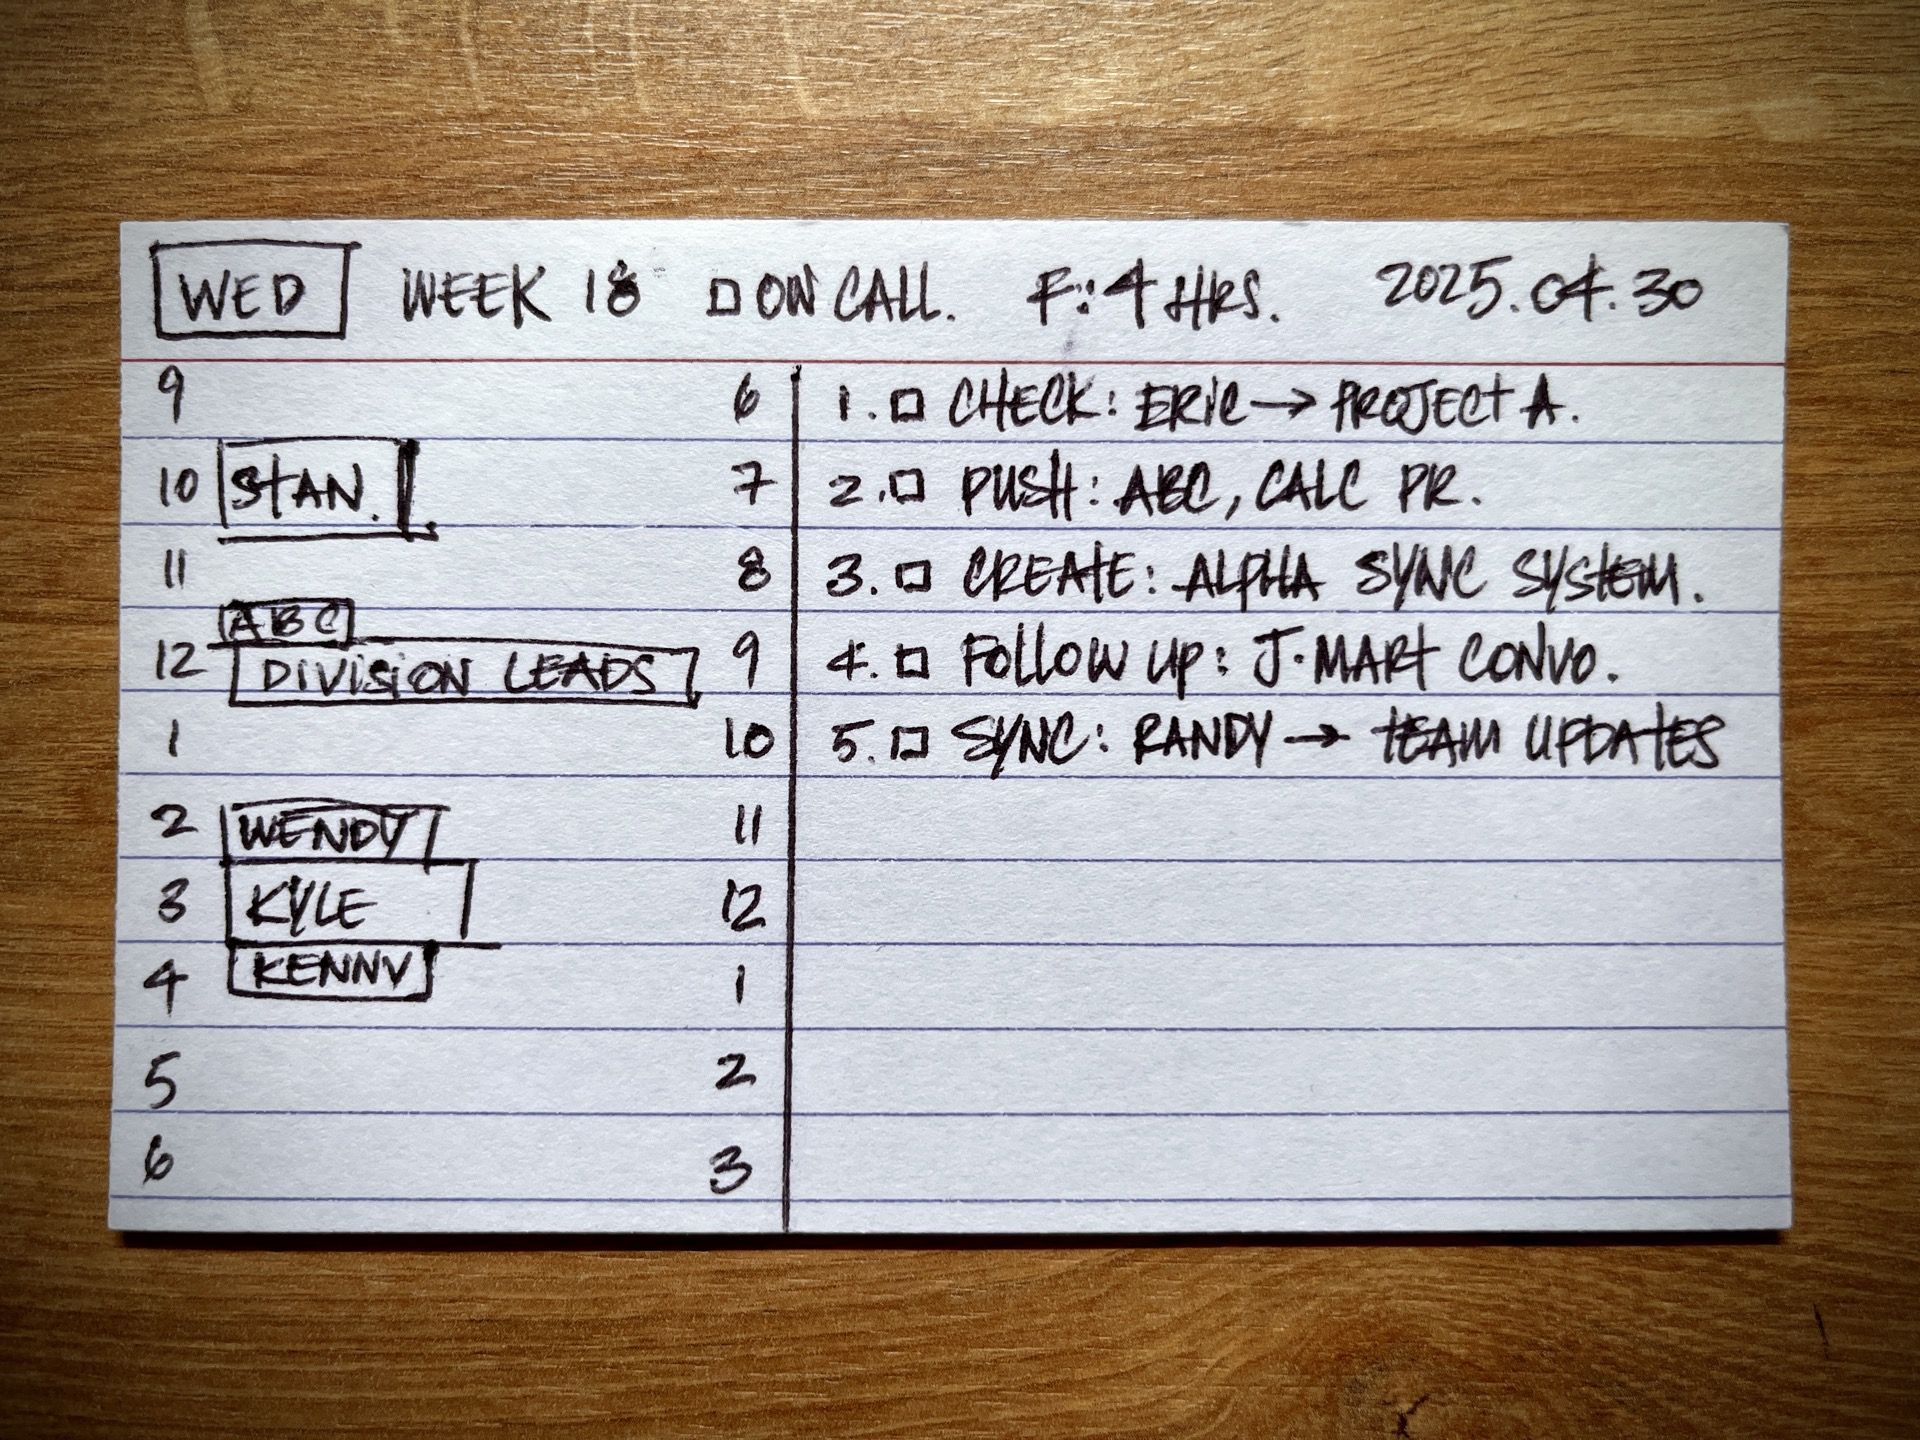 WED WEEK 18 ☐ ON CALL. F: 4 HRS. 2025.04.30
9
10 STAN.
11
ABC
12 DIVISION LEADS
1
2 WENDY
3 KYLE
4 KENNY
5
6
6
7
8
9
10
11
12
1
2
3
1. ☐ CHECK: ERIC → PROJECT A.
2. ☐ PUSH: ABC, CALC PR.
3. ☐ CREATE: ALPHA SYNC SYSTEM.
4. ☐ FOLLOW UP: J.MART CONVO.
5. ☐ SYNC: RANDY → TEAM UPDATES